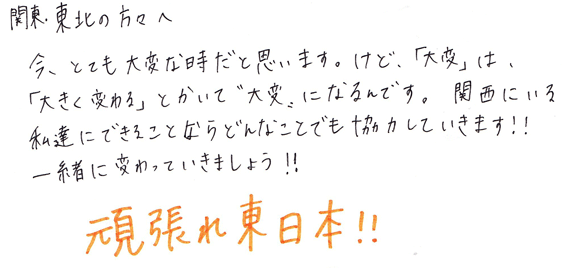 関東・東北の方々へ
今、とても大変な時だと思います。けど、「大変」は、
「大きく変わる」とかいて〝大変〟になるんです。関西にいる
私達にできることならどんなことでも協力していきます!!
一緒に変わっていきましょう!!
頑張れ東日本!!